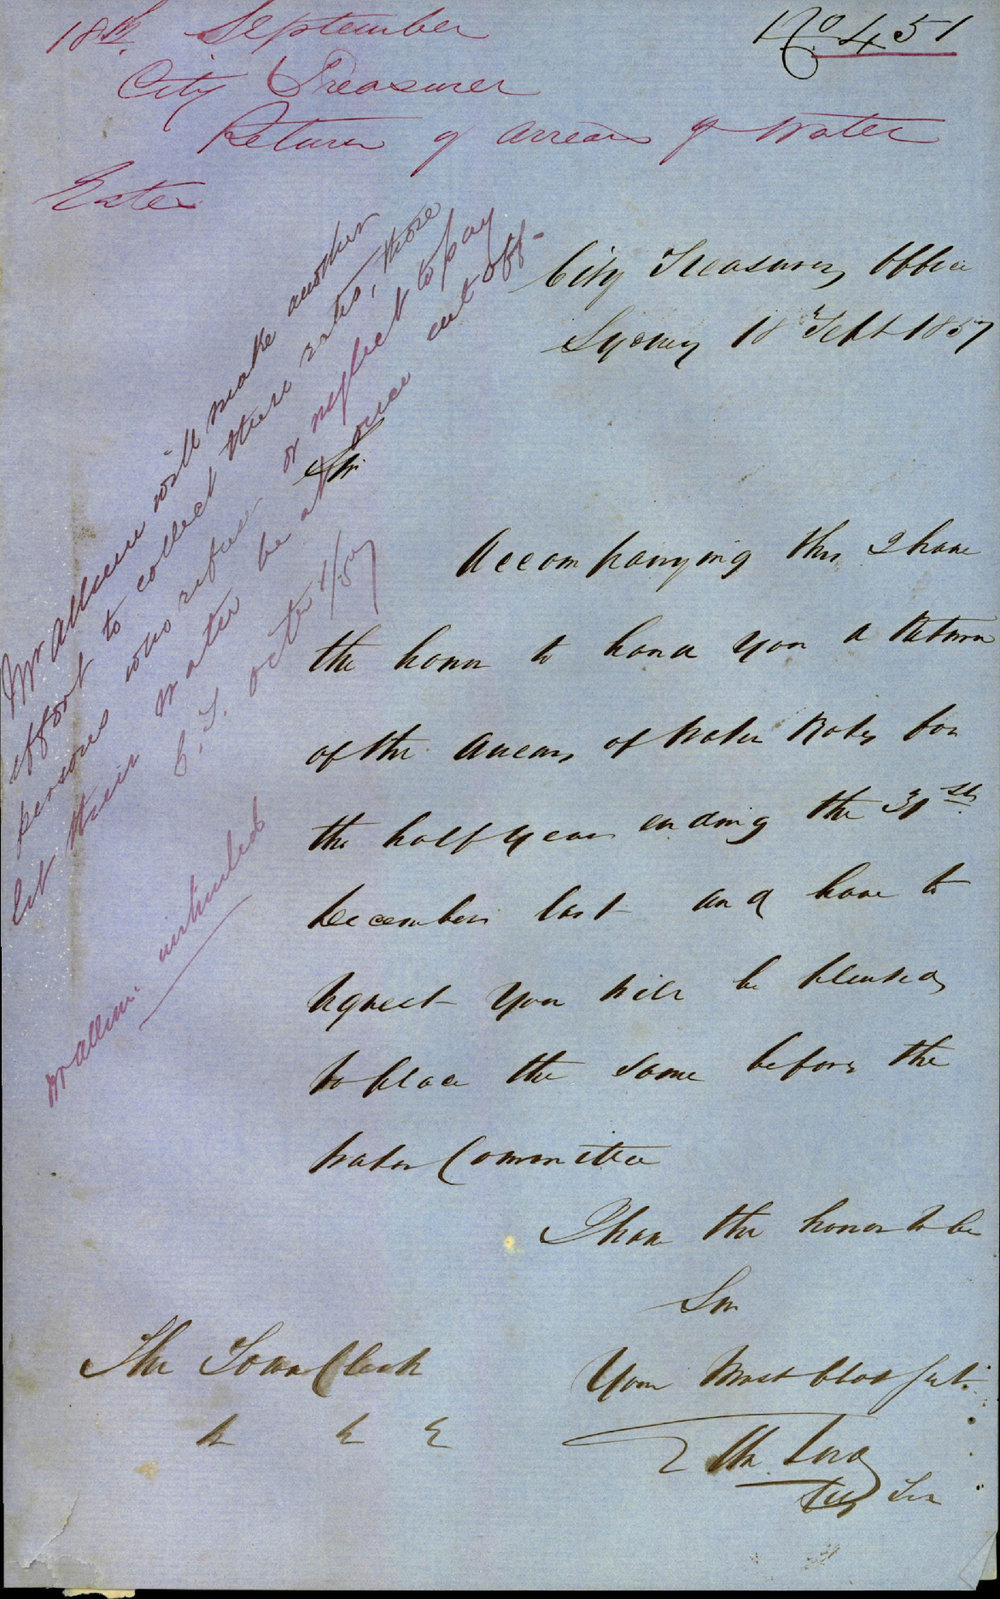 18th September
No 451
City Treasurer
Return of arrears of Water
Rates
City Treasurers Office
Sydney 18 Sept 1857
Sir
Accompanying this I have
the honor to hand you a Return
of the Arrears of Water Rates for
the half year ending the 31st
December last and have to
request you will be pleased
to place the same before the
Water Committee
I have the honor to be
Sir
Your Most Obt Sert
City Tr
The Town Clerk
&c &c &c
Mr Allum will make another
effort to collect these rates, those
persons who refuse or neglect to pay
let their water be at once cut off.
C.T. Octr 1/57
Mr Allum instructed